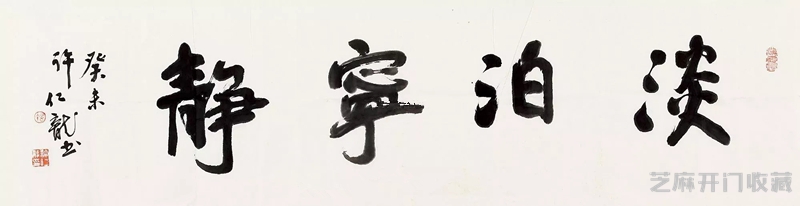 淡泊寧靜
癸未
许仁龍书
芝麻开门收藏